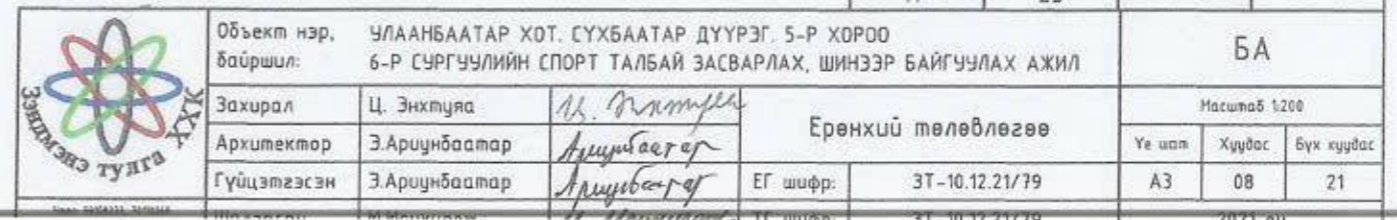 Объект нэр, байршил:
УЛААНБААТАР ХОТ. СҮХБААТАР ДҮҮРЭГ. 5-Р ХОРОО
6-Р СУРГУУЛИЙН СПОРТ ТАЛБАЙ ЗАСВАРЛАХ, ШИНЭЭР БАЙГУУЛАХ АЖИЛ
БА
Зэндмэнэ тулга ХХК
Захирал Ц. Энхтуяа Ц. Энхтуяа
Ерөнхий төлөвлөгөө
Масштаб 1:200
Архитектор Э.Ариунбаатар Ариунбаатар
Үе шат Хуудас Бүх хуудас
Гүйцэтгэсэн Э.Ариунбаатар Ариунбаатар ЕГ шифр: ЗТ-10.12.21/79 А3 08 21